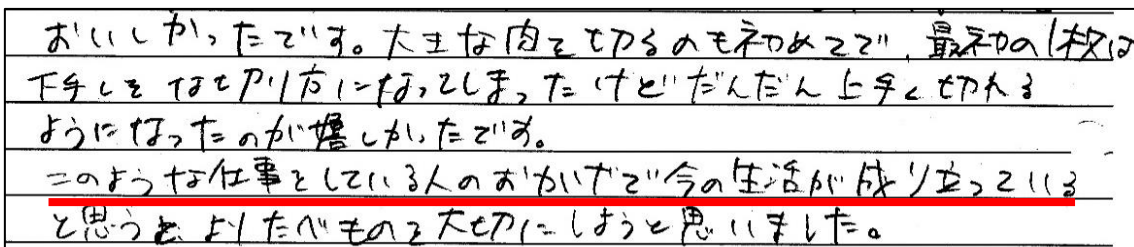 おいしかったです。大きな肉を切るのも初めてで、最初の1枚は
下手しそな切り方になってしまったけどだんだん上手く切れる
ようになったのが嬉しかったです。
このような仕事をしている人のおかげで今の生活が成り立っている
と思うと、よりたべものを大切にしようと思いました。